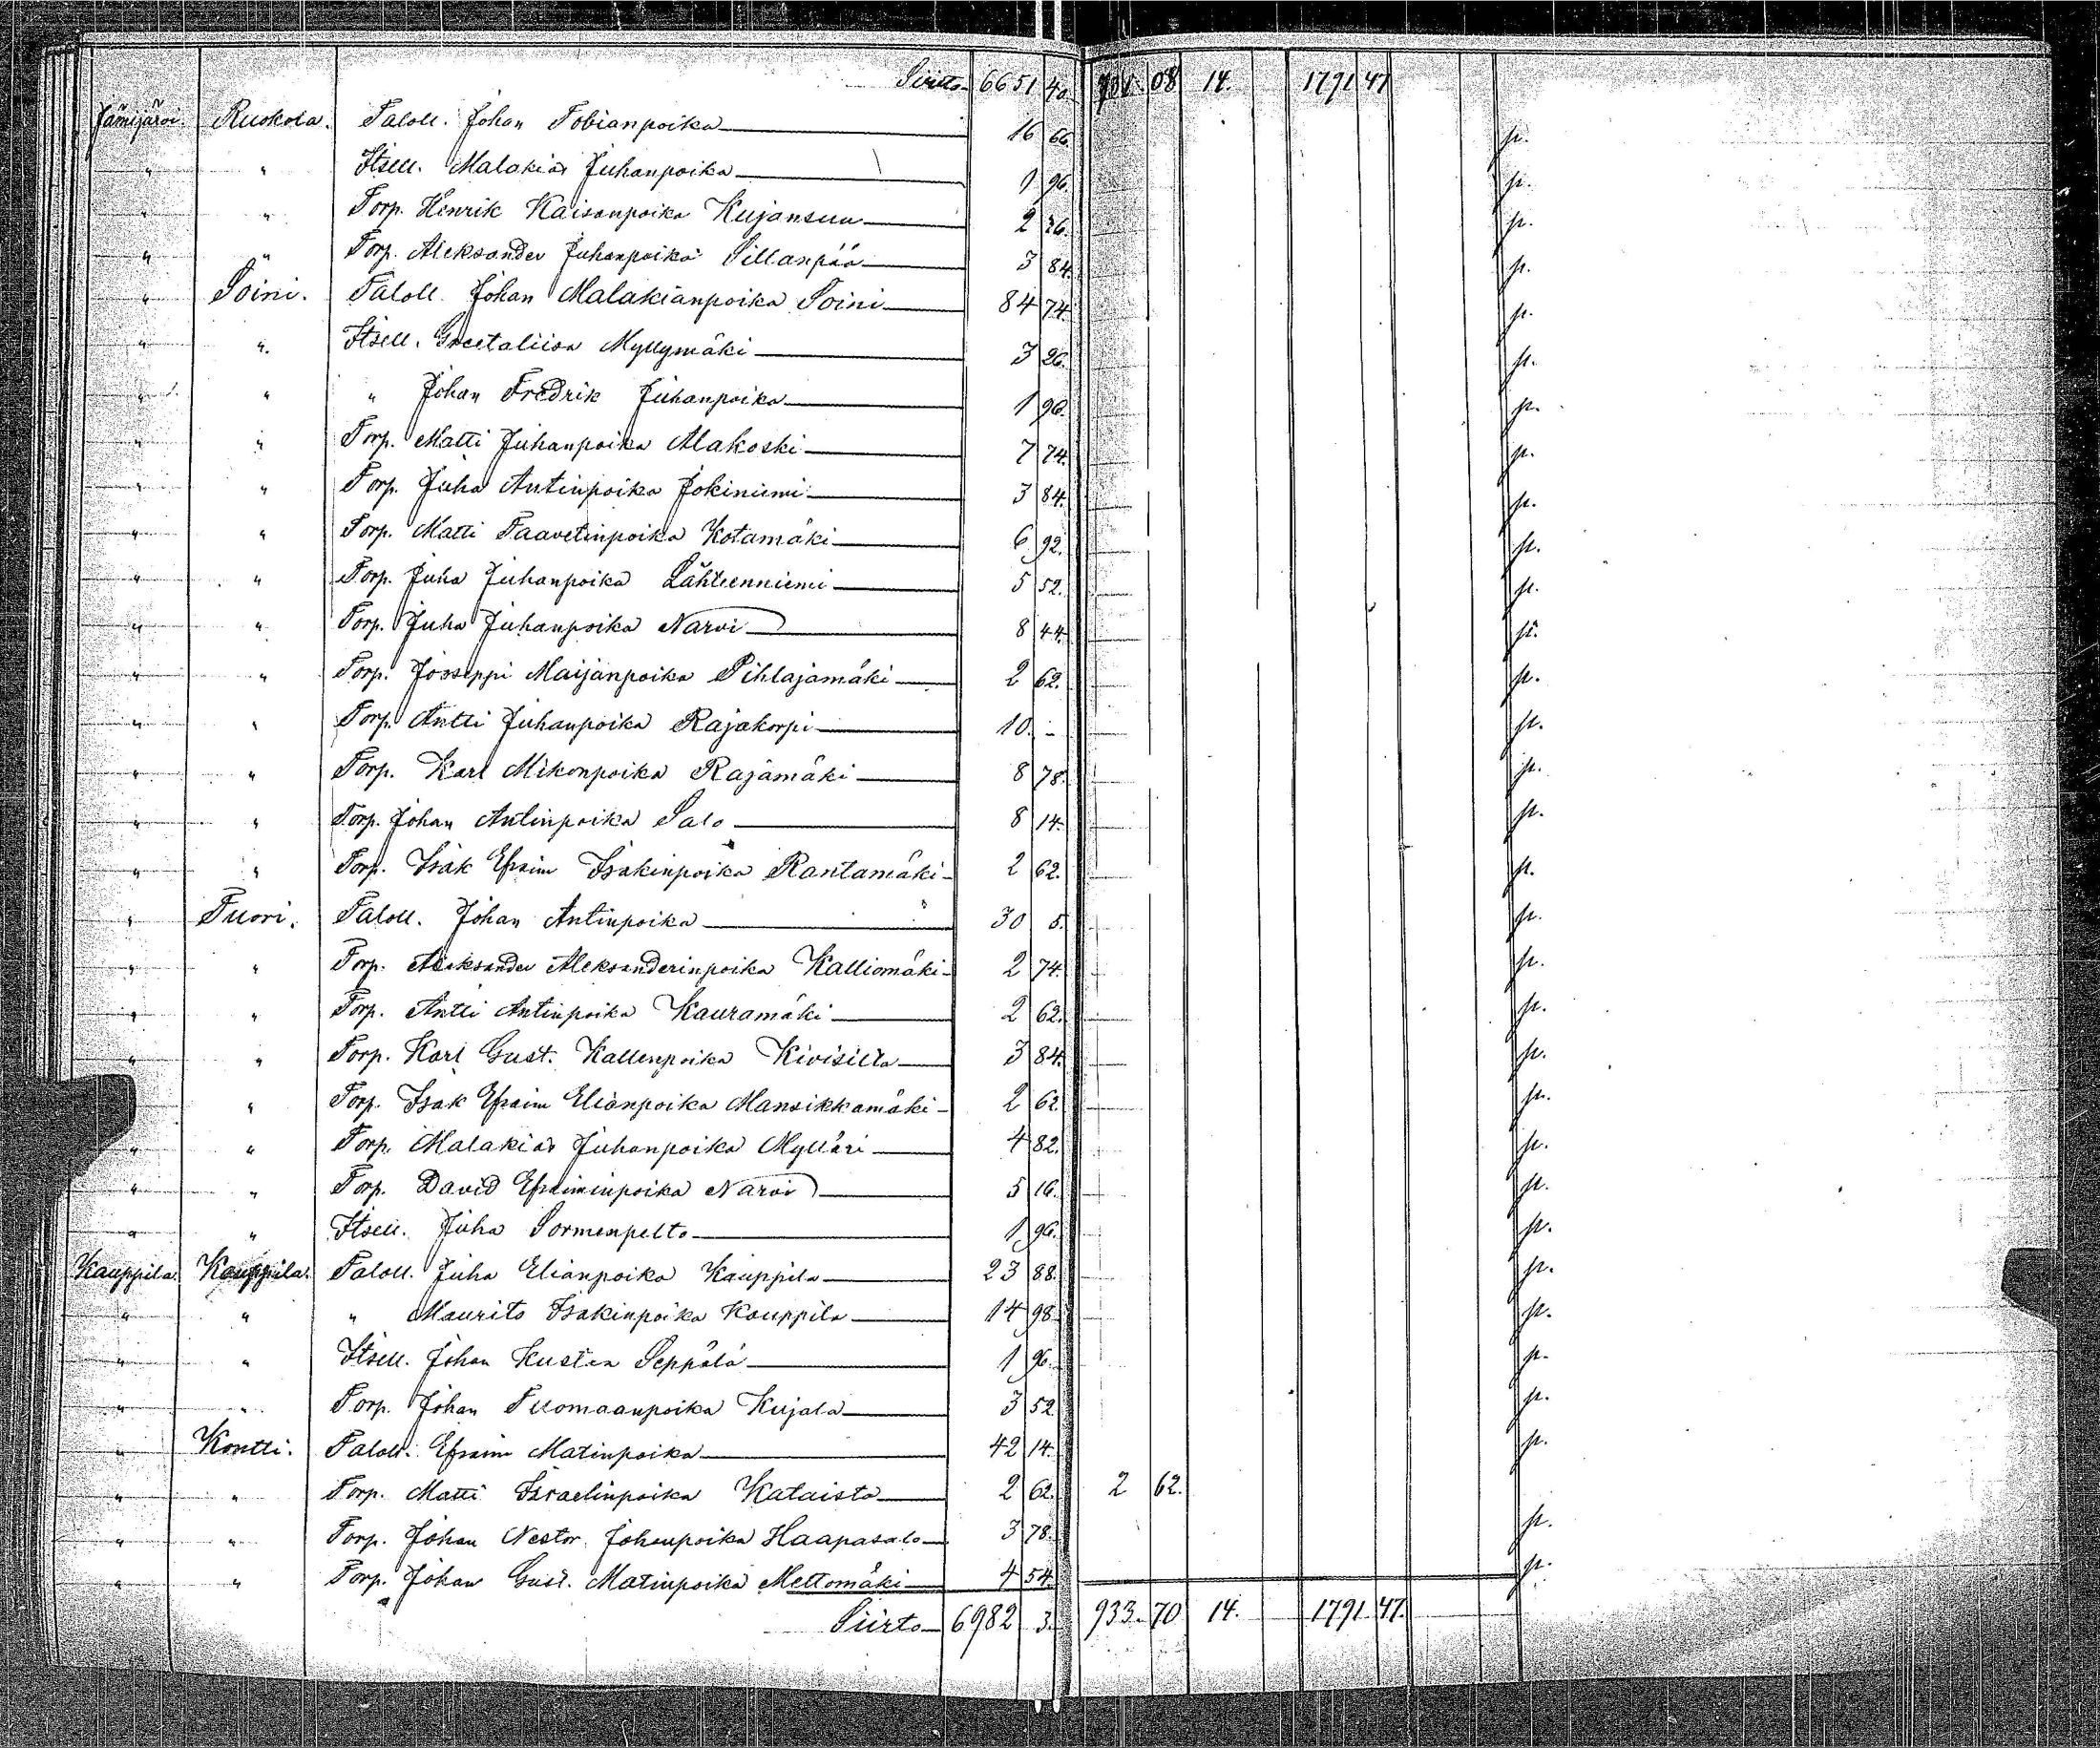 Siirto 6651 40. 931 08 14. 1791 47
Jämijärvi. Ruokola. Taloll. Johan Tobianpoika 16 66. p.
" " Itsell. Malakias Juhanpoika 1 96. p.
" " Torp. Henrik Kaisanpoika Kujansuu 2 26. p.
" " Torp. Aleksander Juhanpoika Sillanpää 3 84. p.
" Soini. Taloll. Johan Malakianpoika Soini 84 74. p.
" " Itsell. Greetaliisa Myllymäki 3 26. p.
" " " Johan Fredrik Juhanpoika 1 96. p.
" " Torp. Matti Juhanpoika Alakoski 7 74. p.
" " Torp. Juha Antinpoika Jokiniemi 3 84. p.
" " Torp. Matti Taavetinpoika Kotamäki 6 92. p.
" " Torp. Juha Juhanpoika Lähteenniemi 5 52. p.
" " Torp. Juha Juhanpoika Narvi 8 44. p.
" " Torp. Josseppi Maijanpoika Pihlajamäki 2 62. p.
" " Torp. Antti Juhanpoika Rajakorpi 10. - p.
" " Torp. Karl Mikonpoika Rajamäki 8 78. p.
" " Torp. Johan Antinpoika Salo 8 14. p.
" " Torp. Isak Efraim Isakinpoika Rantamäki 2 62. p.
" Tuori. Taloll. Johan Antinpoika 30 5. p.
" " Torp. Aleksander Aleksanderinpoika Kalliomäki 2 74. p.
" " Torp. Antti Antinpoika Kauramäki 2 62. p.
" " Torp. Karl Gust. Kallenpoika Kivisilta 3 84. p.
" Torp. Isak Efraim Elianpoika Mansikkamäki 2 62. p.
" " Torp. Malakias Juhanpoika Mylläri 4 82. p.
" " Torp. David Efraiminpoika Narvi 5 16. p.
" " Itsell. Juha Sormenpelto 1 96. p.
Kauppila. Kauppila. Taloll. Juha Elianpoika Kauppila 23 88. p.
" " " Maurits Isakinpoika Kauppila 14 98. p.
" " Itsell. Johan Kustaa Seppälä 1 96. p.
" " Torp. Johan Tuomaanpoika Kujala 3 52. p.
" Kontti. Taloll. Efraim Matinpoika 42 14. p.
" " Torp. Matti Israelinpoika Kataisto 2 62. 2 62.
" " Torp. Johan Nestor Johanpoika Haapasalo 3 78. p.
" " Torp. Johan Gust. Matinpoika Mettomäki 4 54. p.
Siirto 6982 3. 933. 70 14. 1791 47.